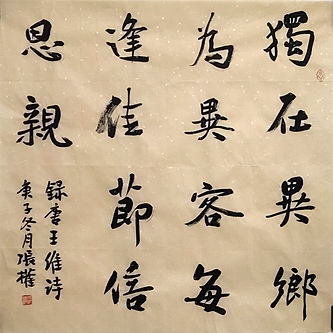 獨在異鄉
為異客每
逢佳節倍
思親
録唐王維詩
庚子冬月張權